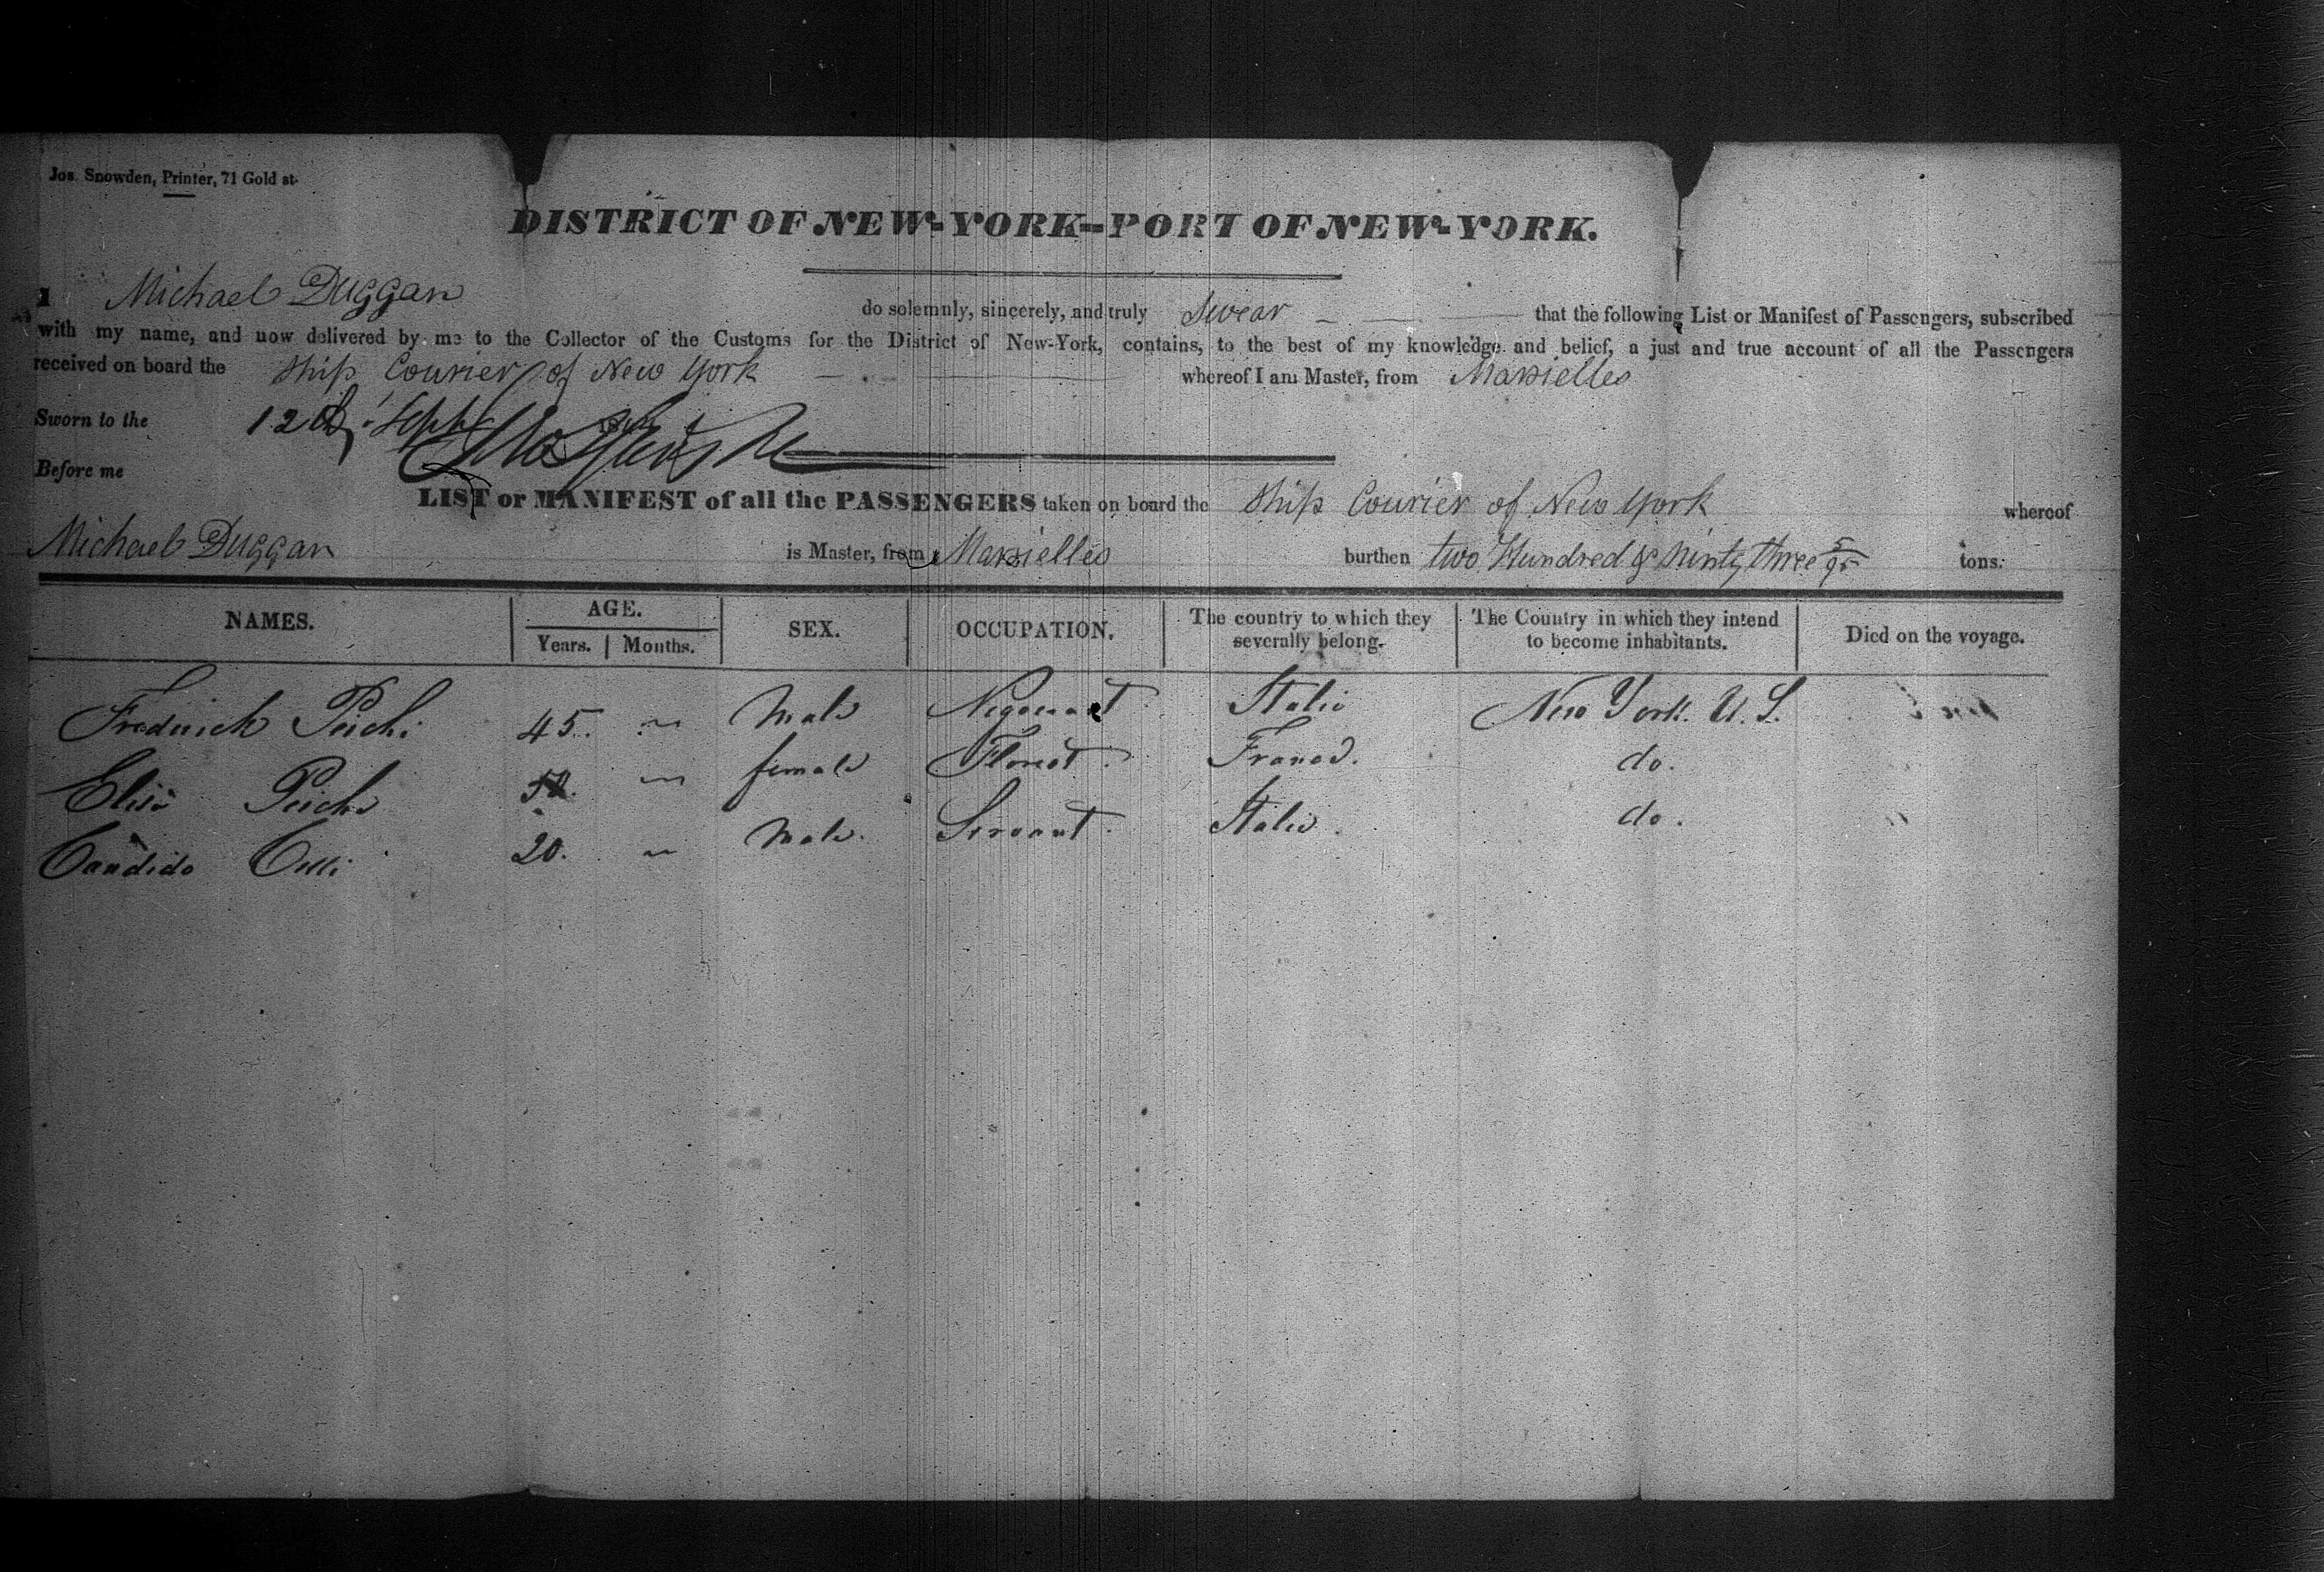 Jos. Snowden, Printer, 71 Gold st.
DISTRICT OF NEW-YORK--PORT OF NEW-YORK.
I Michael Duggan do solemnly, sincerely, and truly Swear that the following List or Manifest of Passengers, subscribed
with my name, and now delivered by me to the Collector of the Customs for the District of New-York, contains, to the best of my knowledge and belief, a just and true account of all the Passengers
received on board the Ship Courier of New York whereof I am Master, from Marsielles
Sworn to the 12th Sept
Before me
LIST or MANIFEST of all the PASSENGERS taken on board the Ship Courier of New York whereof
Michael Duggan is Master, from Marsielles burthen two Hundred & Ninty three 5/95 tons.
NAMES. AGE. SEX. OCCUPATION. The country to which they severally belong. The Country in which they intend to become inhabitants. Died on the voyage.
Years. Months.
Frederick 45. Male Negociant Italie New York. U.S.
Elise female France. do.
Candido 20. Male. Servant. Italie. do.